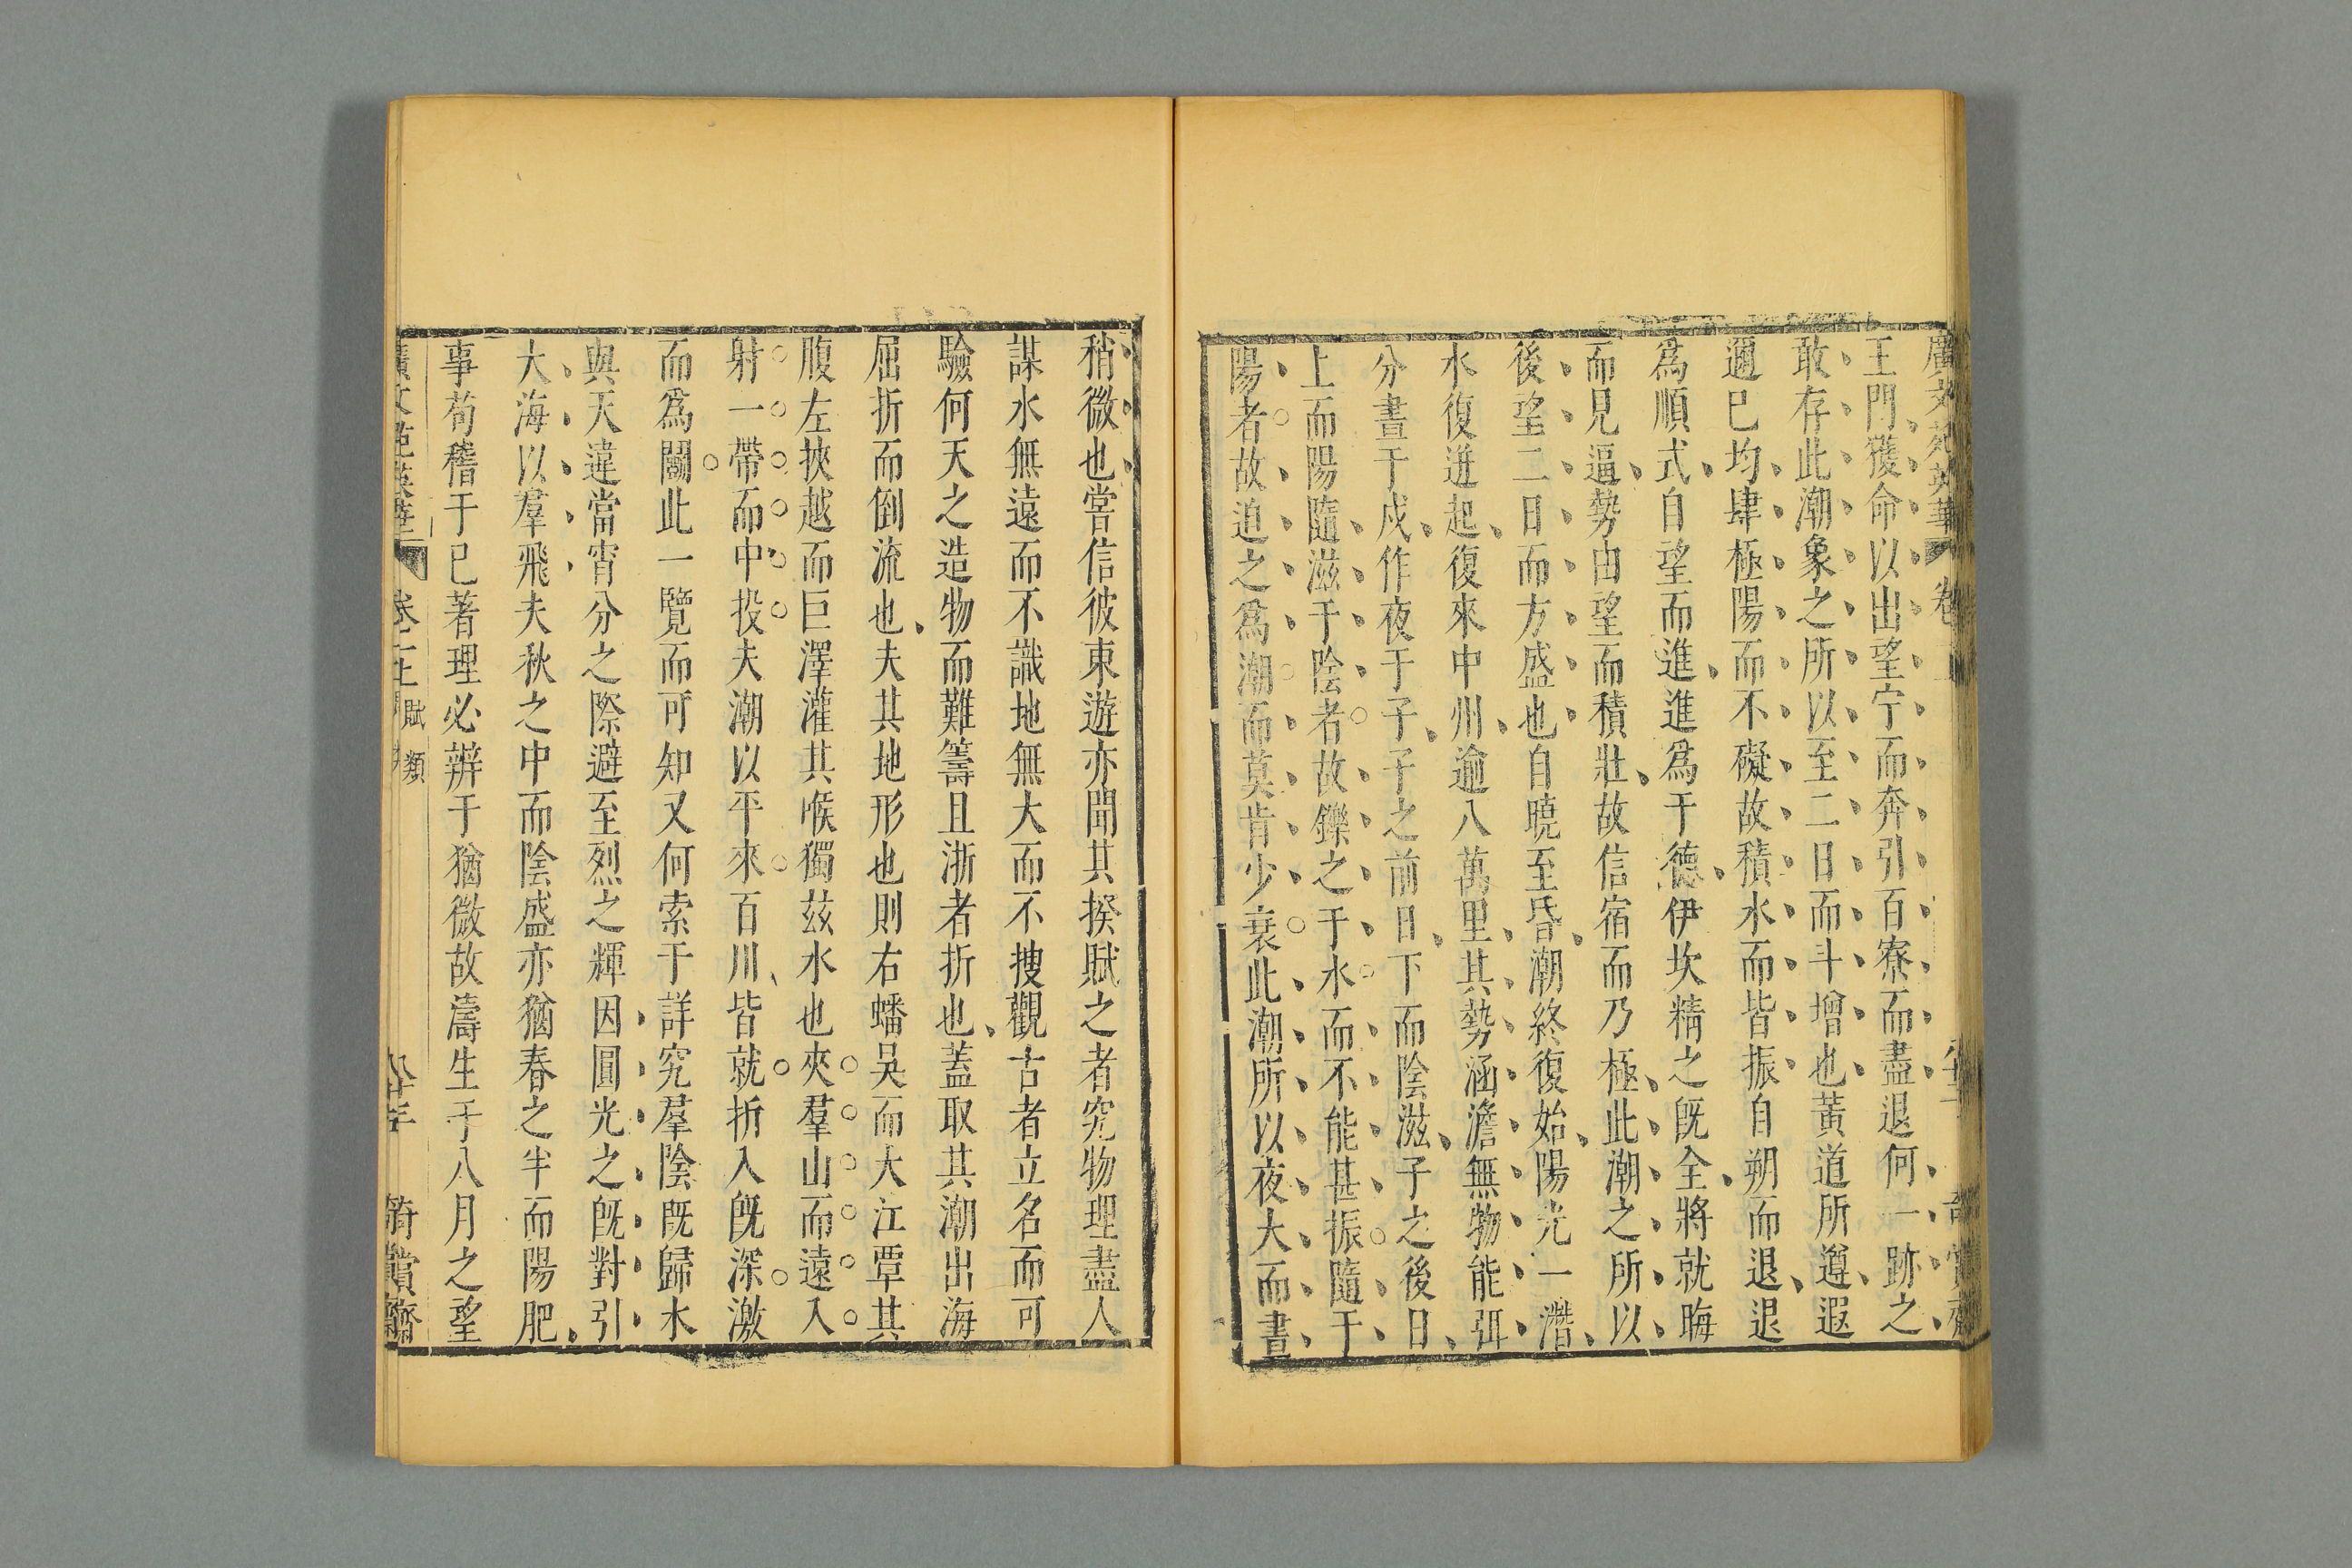 廣文苑英華 卷
王門獲命以出望宁而奔引百寮而盡退何一跡之
敢存此潮象之所以至二日而斗增也黃道所遵遐
邇已均肆極陽而不礙故積水而皆振自朔而退退
爲順式自望而進進爲干德伊坎精之旣全將就晦
而見逼勢由望而積壯故信宿而乃極此潮之所以
後望二日而方盛也自曉至昏潮終復始陽光一潛
水復迸起復來中州逾八萬里其勢涵澹無物能弭
分晝于戌作夜于子子之前日下而陰滋子之後日
上而陽隨滋于陰者故鑠之于水而不能甚振隨于
陽者故迫之爲潮而莫肯少衰此潮所以夜大而晝
稍微也嘗信彼東遊亦聞其揆賦之者究物理盡人
謀水無遠而不識地無大而不搜觀古者立名而可
驗何天之造物而難籌且浙者折也蓋取其潮出海
屈折而倒流也夫其地形也則右蟠吳而大江覃其
腹左挾越而巨澤灌其喉獨茲水也夾羣山而遠入
射一帶而中投夫潮以平來百川皆就折入旣深激
而爲鬬此一覽而可知又何索于詳究羣陰旣歸水
與天違當宵分之際避至烈之輝因圓光之旣對引
大海以羣飛夫秋之中而陰盛亦猶春之半而陽肥
事苟稽于已著理必辨于猶微故濤生于八月之望
廣文苑英華 卷二上 賦類